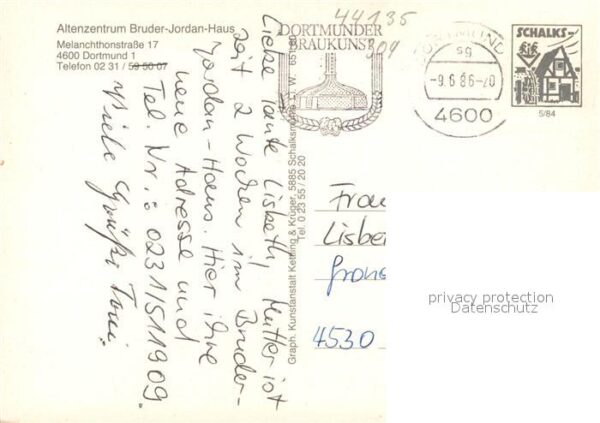 Altenzentrum Bruder-Jordan-Haus
Melanchthonstraße 17
4600 Dortmund 1
Telefon 02 31 / 59 50 07
Liebe Tante Lisbeth, Mutter ist
seit 2 Wochen im Bruder-
Jordan-Haus. Hier ihre
neue Adresse und
Tel. Nr.: 0231/511909.
Viele Grüße Toni.
Graph. Kunstanstalt Kettling & Krüger, 5885 Schalksmühle
Tel. 0 23 55 / 20 20
44135
DORTMUNDER
BRAUKUNST
DORTMUND
sg
-9.6.86-20
4600
SCHALKS-
5/84
Frau
Lisbe
4530
privacy protection
Datenschutz